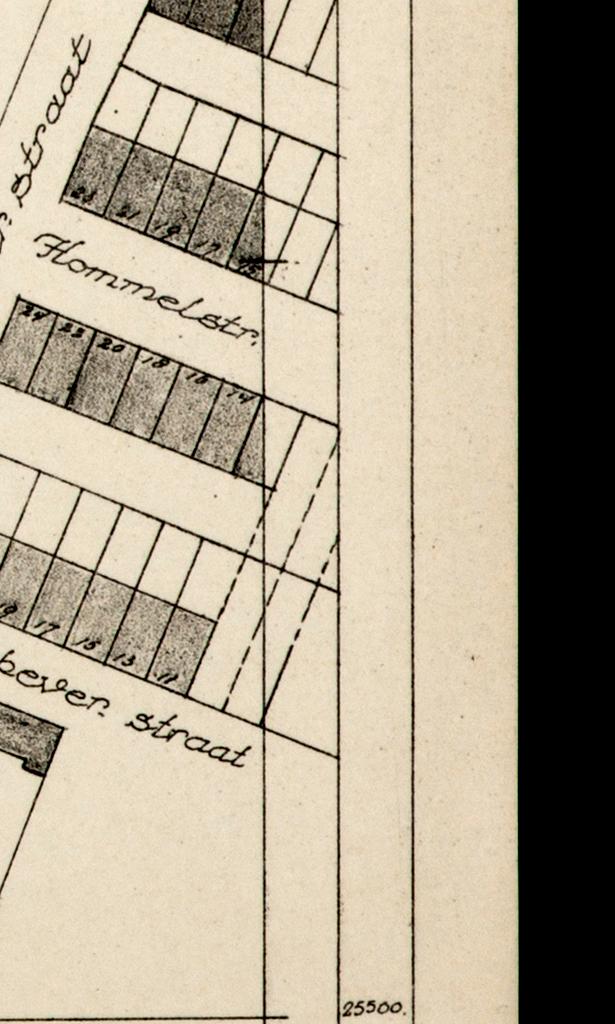 r. straat
23 21 19 17 15
Hommelstr.
24 22 20 18 16 14
19 17 15 13 11
bever. straat
25500.